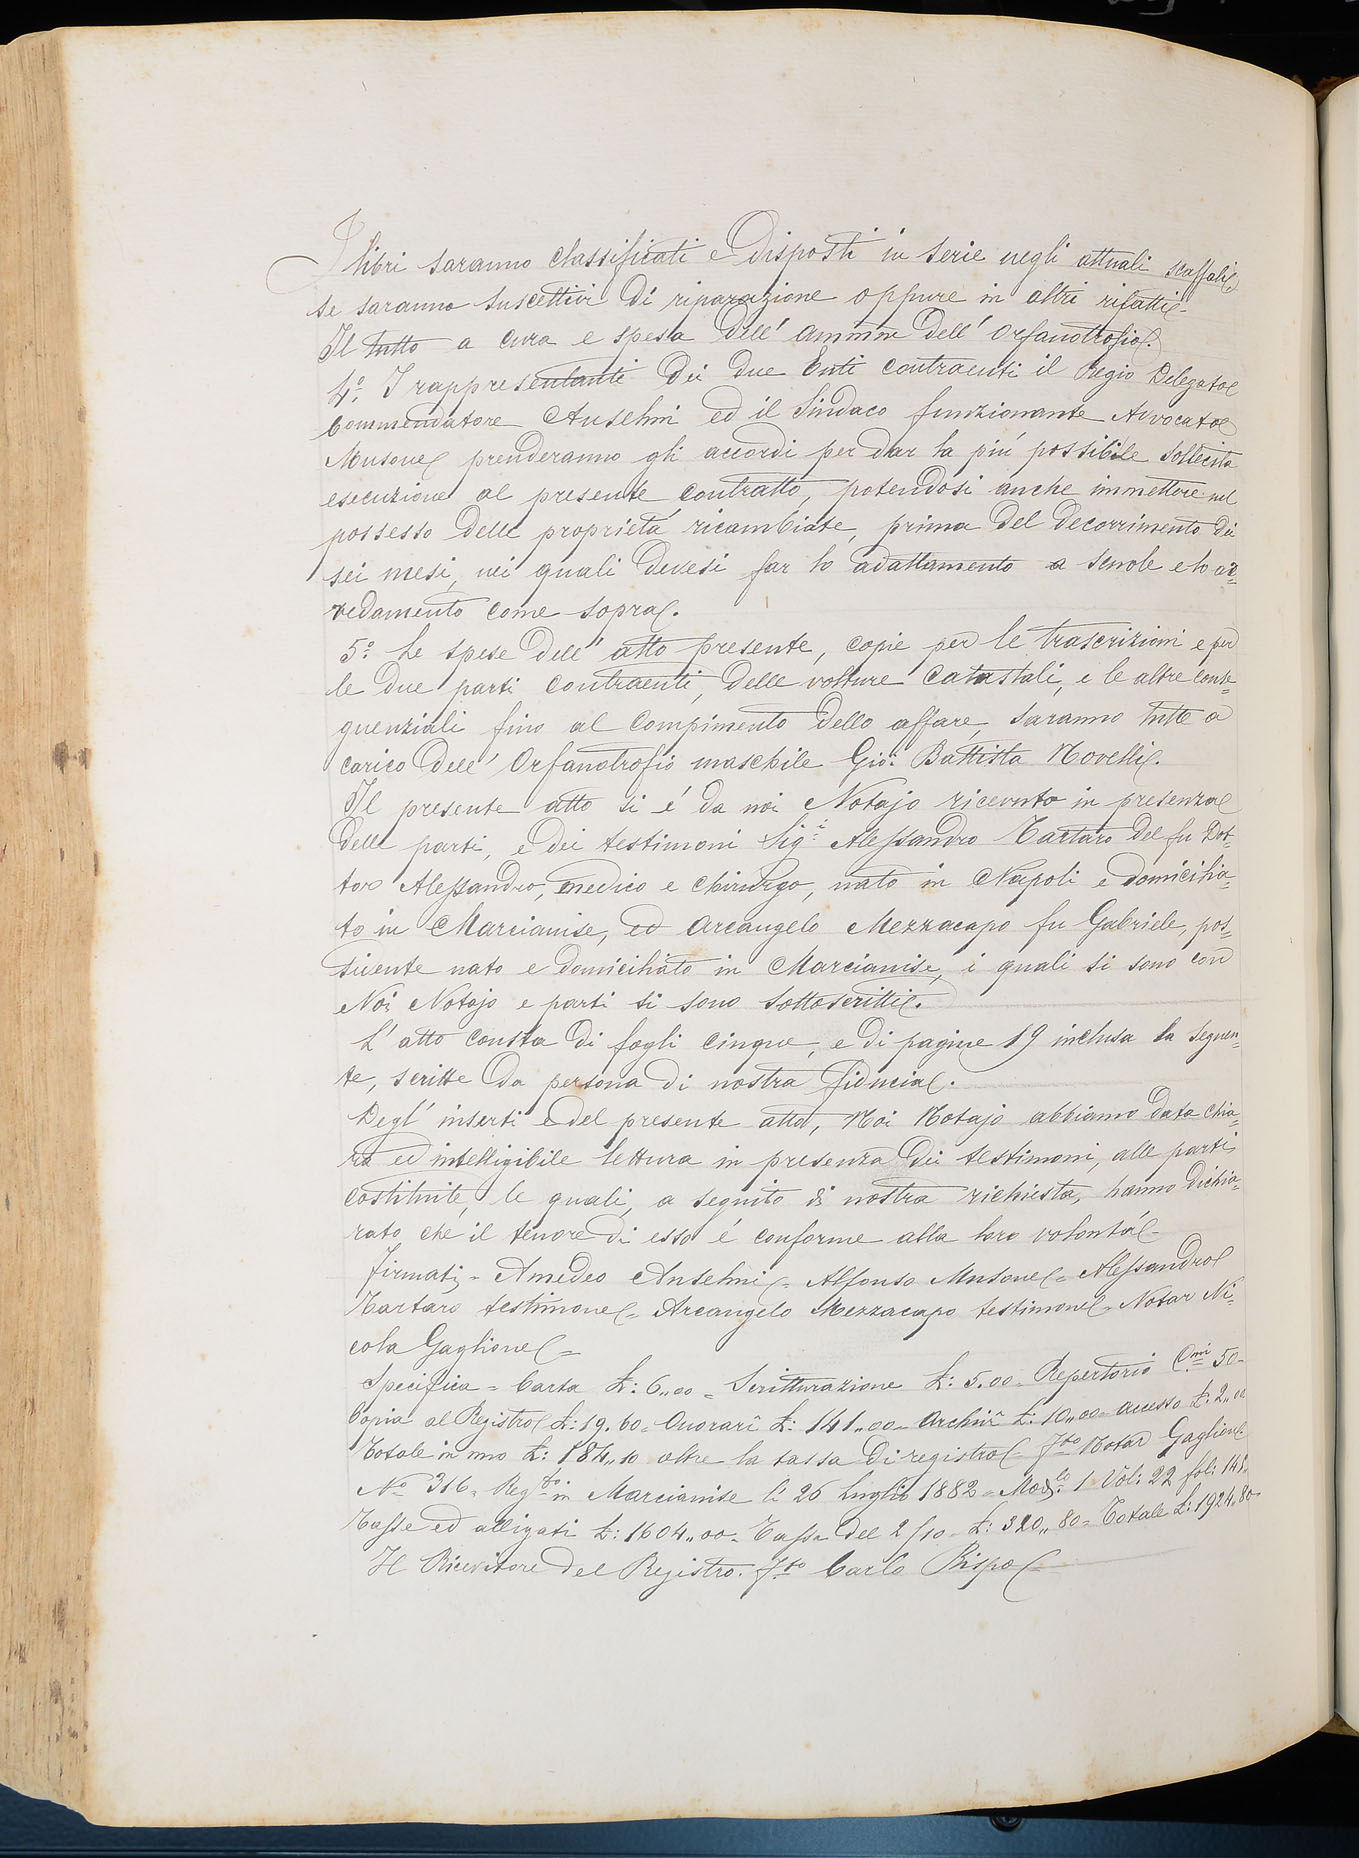 I libri saranno classificati e disposti in serie negli attuali scaffali
se saranno suscettivi di riparazione oppure in altri rifatti.
Il tutto a cura e spesa dell' ammne dell' Orfanotrofio.
4.º I rappresentanti dei due Enti contraenti il Regio Delegato
Commendatore Anselmi ed il Sindaco funzionante Avvocato
Musone prenderanno gli accordi per dar la piú possibile sollecita
esecuzione al presente contratto, potendosi anche immettere nel
possesso delle proprietá ricambiate, prima del decorrimento dei
sei mesi, nei quali devesi far lo adattamento a scuole e lo ar=
redamento come sopra.
5.º Le spese dell' atto presente, copie per le trascrizioni e per
le due parti contraenti, delle volture catastali, e le altre conse=
quenziali fino al compimento dello affare, saranno tutte a
carico dell' Orfanotrofio maschile Gio: Battista Novelli.
Il presente atto si é da noi Notajo ricevuto in presenza
delle parti, e dei testimoni Sig.i Alessandro Tartaro del fu Dot=
tor Alessandro, medico e chirurgo, nato in Napoli e domicilia=
to in Marcianise, ed Arcangelo Mezzacapo fu Gabriele, pos=
sidente nato e domiciliato in Marcianise, i quali si sono con
Noi Notajo e parti si sono sottoscritti.
L' atto consta di fogli cinque, e di pagine 19 inclusa la seguen=
te, scritte da persona di nostra fiducia.
Degl' inserti e del presente atto, Noi Notajo abbiamo data chia=
ra ed intelligibile lettura in presenza dei testimoni, alle parti
costituite, le quali, a seguito di nostra richiesta, hanno dichia=
rato che il tenore di esso é conforme alla loro volontá
Firmati = Amedeo Anselmi = Alfonso Musone = Alessandro
Tartaro testimone = Arcangelo Mezzacapo testimone = Notar Ni=
cola Gaglione =
Specifica = Carta £: 6,,00 = Scritturazione £: 5.00 = Repertorio Cmi 50 =
Copia al Registro £: 19.60 = Onorari £: 141,,00 = Archivi £: 10,,00 = accesso £: 2,,00
Totale in uno £: 184,,10 oltre la tassa di registro = fto Notar Gaglione
No 316 = Regto in Marcianise li 26 Luglio 1882 = Modlo 1 Vol: 22 fol: 141=
Tasse ed alligati £: 1604,,00 = Tassa del 2/10 = £: 320,,80 = Totale £: 1924,,80
Il Ricevitore del Registro. fto Carlo Rispo